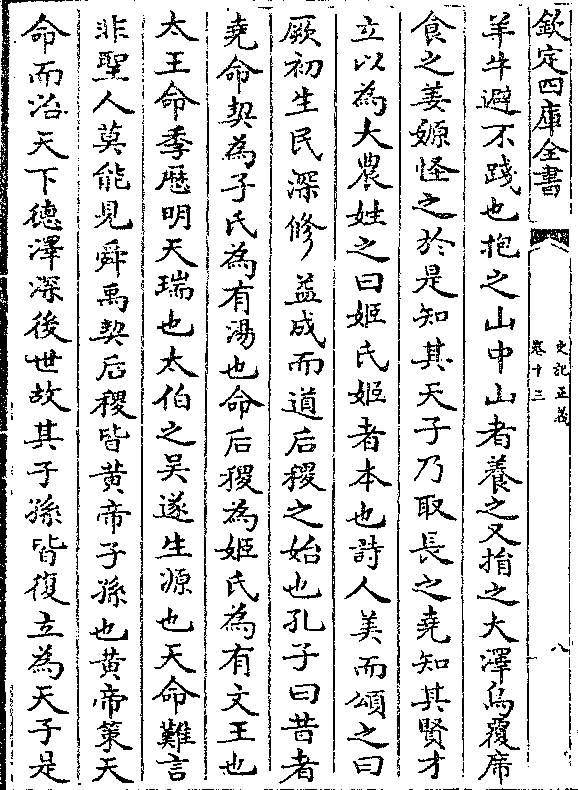 欽定四庫全書
史記正義
卷十三
八
羊牛避不踐也抱之山中山者養之又捐之大澤鳥覆席
食之姜嫄怪之於是知其天子乃取長之堯知其賢才
立以為大農姓之曰姬氏姬者本也詩人美而頌之曰
厥初生民深修益成而道后稷之始也孔子曰昔者
堯命契為子氏為有湯也命后稷為姬氏為有文王也
太王命季歴明天瑞也太伯之吳遂生源也天命難言
非聖人莫能見舜禹契后稷皆黄帝子孫也黄帝策天
命而治天下德澤深後世故其子孫皆復立為天子是